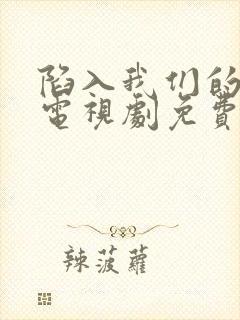 陷入我们的
電視劇免費
辣菠蘿